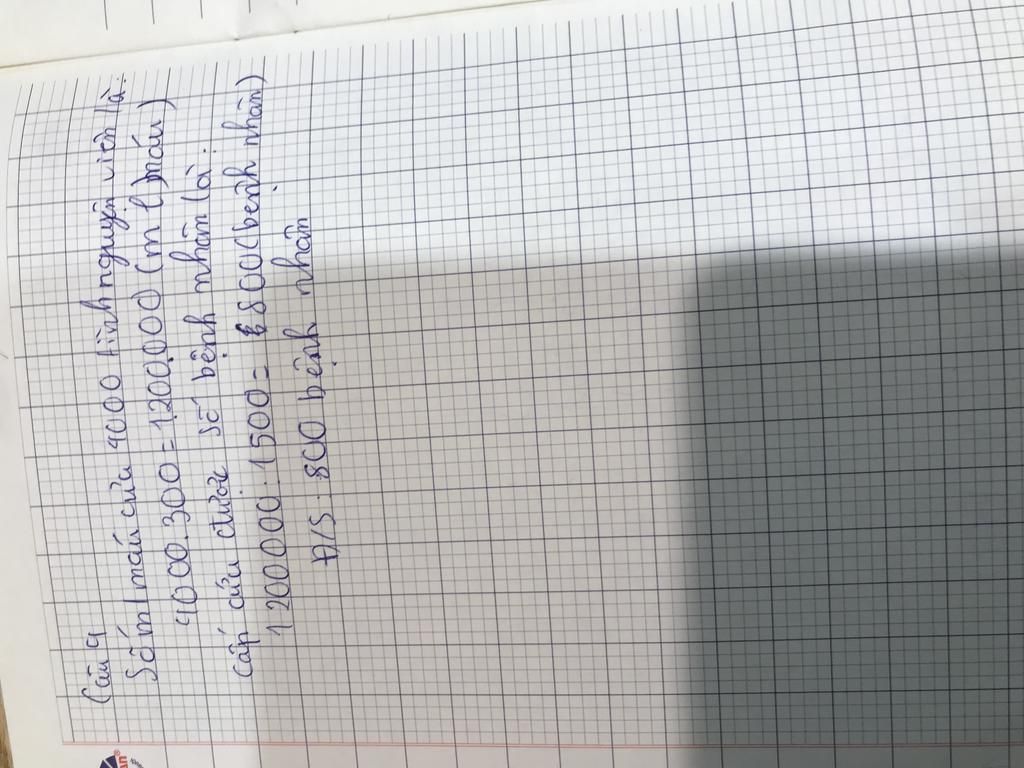 Câu 9
Số ml máu của 4000 tình nguyện viên là:
4000.300=1200.000 (ml máu)
cấp cứu được số bệnh nhân là:
1200000:1500= 800(bệnh nhân)
Đ/S: 800 bệnh nhân